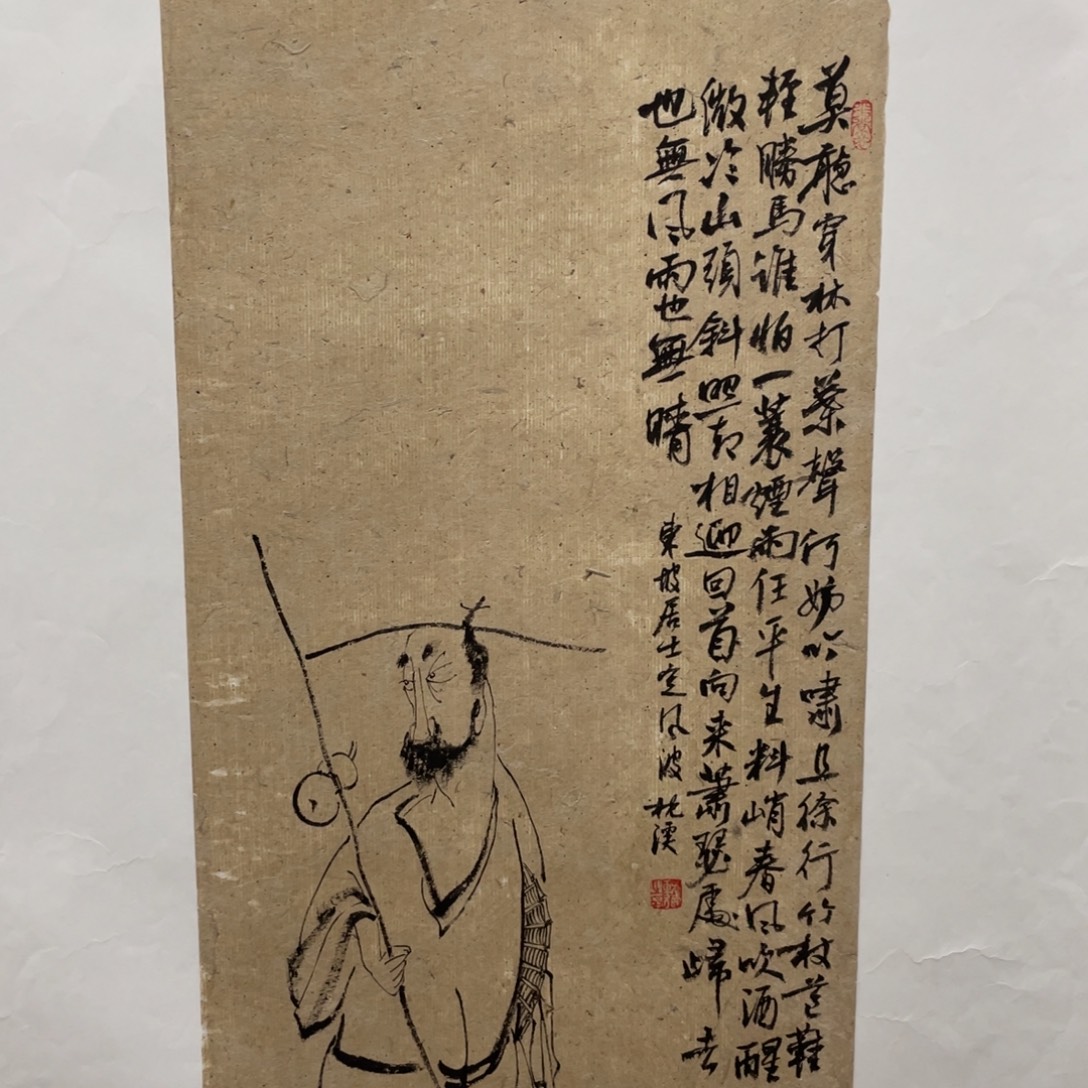 莫聽穿林打葉聲何妨吟嘯且徐行竹杖芒鞋
輕勝馬誰怕一蓑煙雨任平生料峭春風吹酒醒
微冷山頭斜照却相迎回首向来蕭瑟處歸去
也無風雨也無晴
東坡居士定風波 枕溪